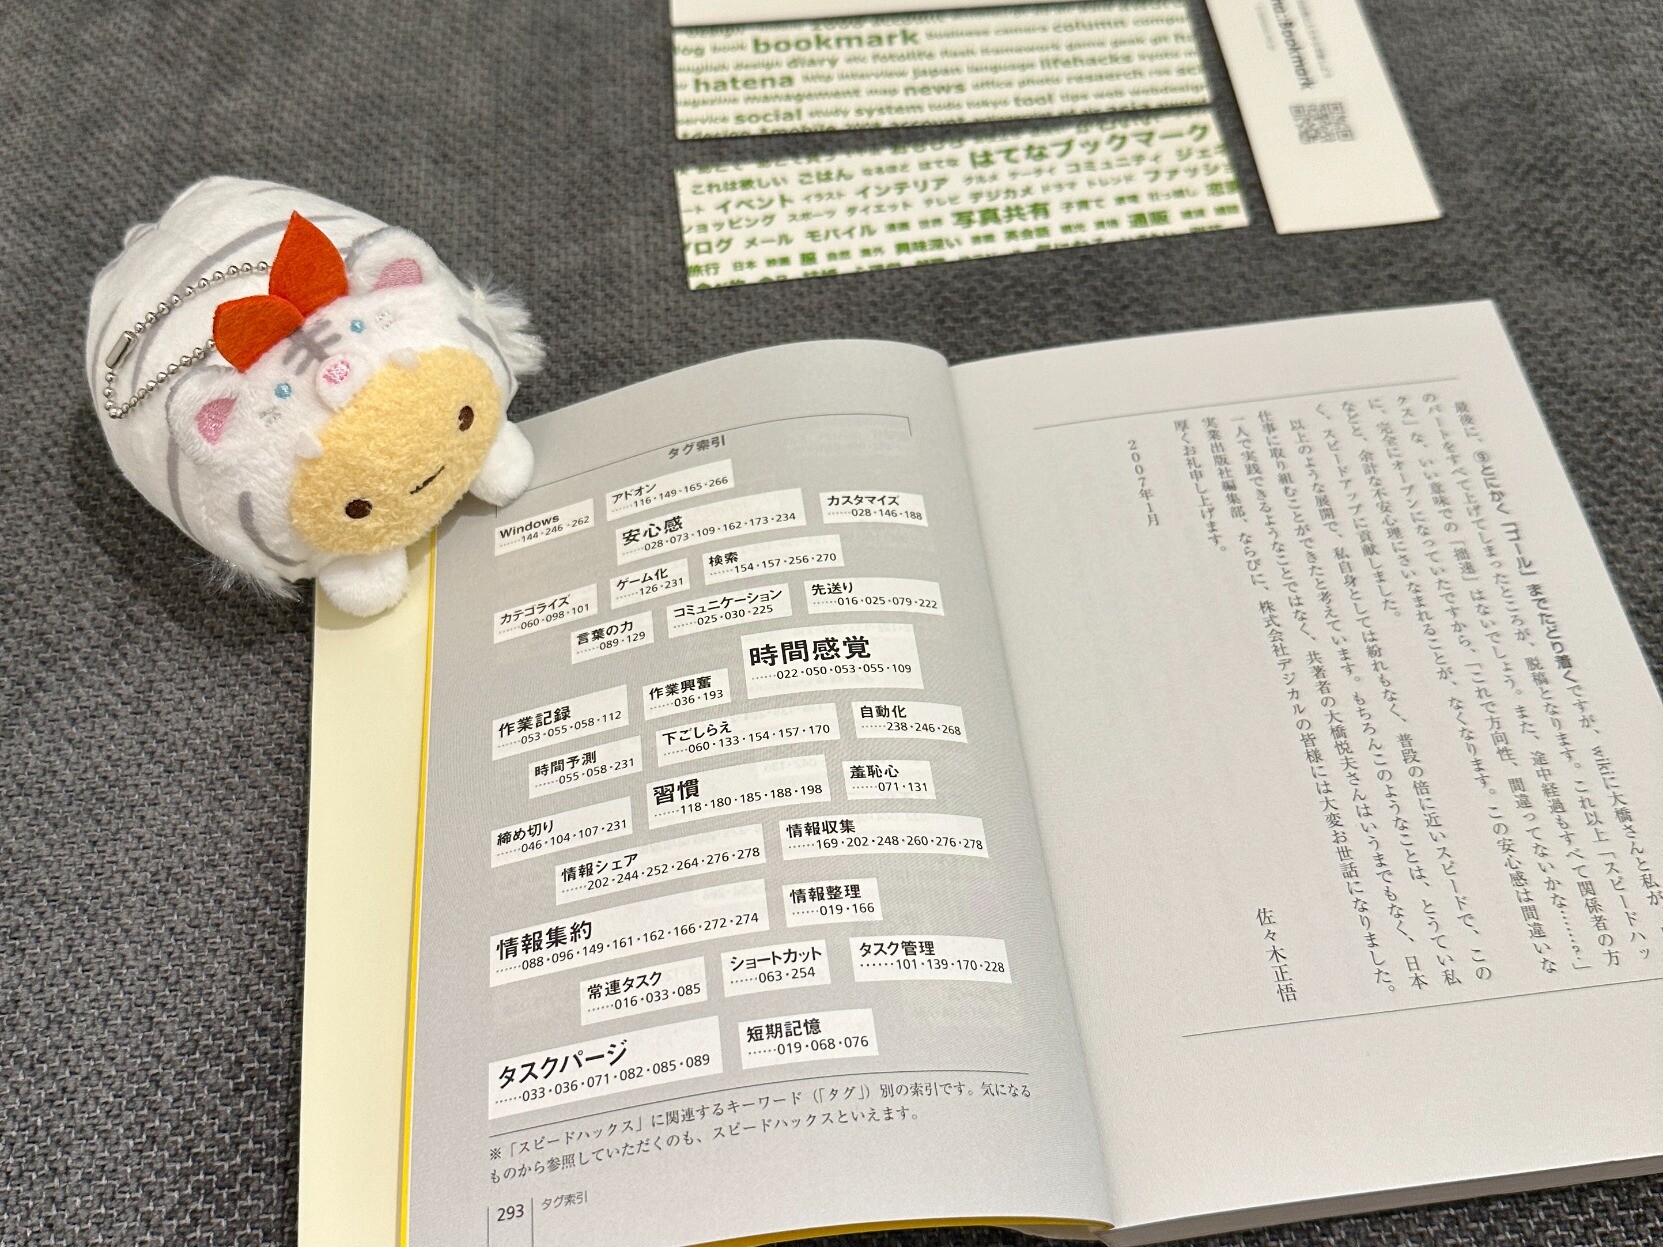 bookmark
hatena
diary
lifehacks
news
management
social
system
tool
はてなブックマーク
これは欲しい ごはん なるほど はてな
イベント イラスト インテリア グルメ ケータイ コミュニティ
ショッピング スポーツ ダイエット テレビ デジカメ ドラマ トレンド ファッション
ブログ メール モバイル 写真共有 子育て
旅行 日本 映画 服 自然 海外 興味深い 英会話 通販
タグ索引
Windows
……144・246・262
アドオン
……116・149・165・266
安心感
……028・073・109・162・173・234
カスタマイズ
……028・146・188
カテゴライズ
……060・098・101
ゲーム化
……126・231
検索
……154・157・256・270
言葉の力
……089・129
コミュニケーション
……025・030・225
先送り
……016・025・079・222
時間感覚
……022・050・053・055・109
作業記録
……053・055・058・112
作業興奮
……036・193
下ごしらえ
……060・133・154・157・170
自動化
……238・246・268
時間予測
……055・058・231
習慣
……118・180・185・188・198
羞恥心
……071・131
締め切り
……046・104・107・231
情報シェア
……202・244・252・264・276・278
情報収集
……169・202・248・260・276・278
情報集約
……088・096・149・161・162・166・272・274
情報整理
……019・166
常連タスク
……016・033・085
ショートカット
……063・254
タスク管理
……101・139・170・228
タスクパージ
……033・036・071・082・085・089
短期記憶
……019・068・076
※「スピードハックス」に関連するキーワード（「タグ」）別の索引です。気になる
ものから参照していただくのも、スピードハックスといえます。
293 タグ索引
最後に、⑨とにかく「ゴール」までたどり着くですが、wikiに大橋さんと私が
のパートをすべて上げてしまったところが、脱稿となります。これ以上「スピードハッ
クス」な、いい意味での「拙速」はないでしょう。また、途中経過もすべて関係者の方
に、完全にオープンになっていたですから、「これで方向性、間違ってないかな……?」
などと、余計な不安心理にさいなまれることが、なくなります。この安心感は間違いな
く、スピードアップに貢献しました。
以上のような展開で、私自身としては紛れもなく、普段の倍に近いスピードで、この
仕事に取り組むことができたと考えています。もちろんこのようなことは、とうてい私
一人で実践できるようなことではなく、共著者の大橋悦夫さんはいうまでもなく、日本
実業出版社編集部、ならびに、株式会社デジカルの皆様には大変お世話になりました。
厚くお礼申し上げます。
2007年1月
佐々木正悟